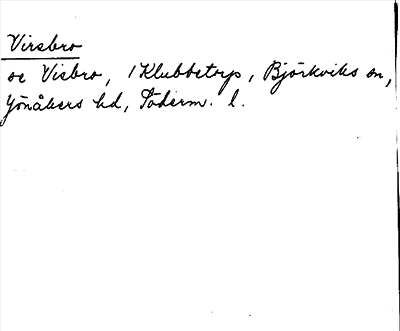 Virsbro
se Visbro, 1 Klubbetorp, Björkviks sn,
Jönåkers hd, Söderm. l.